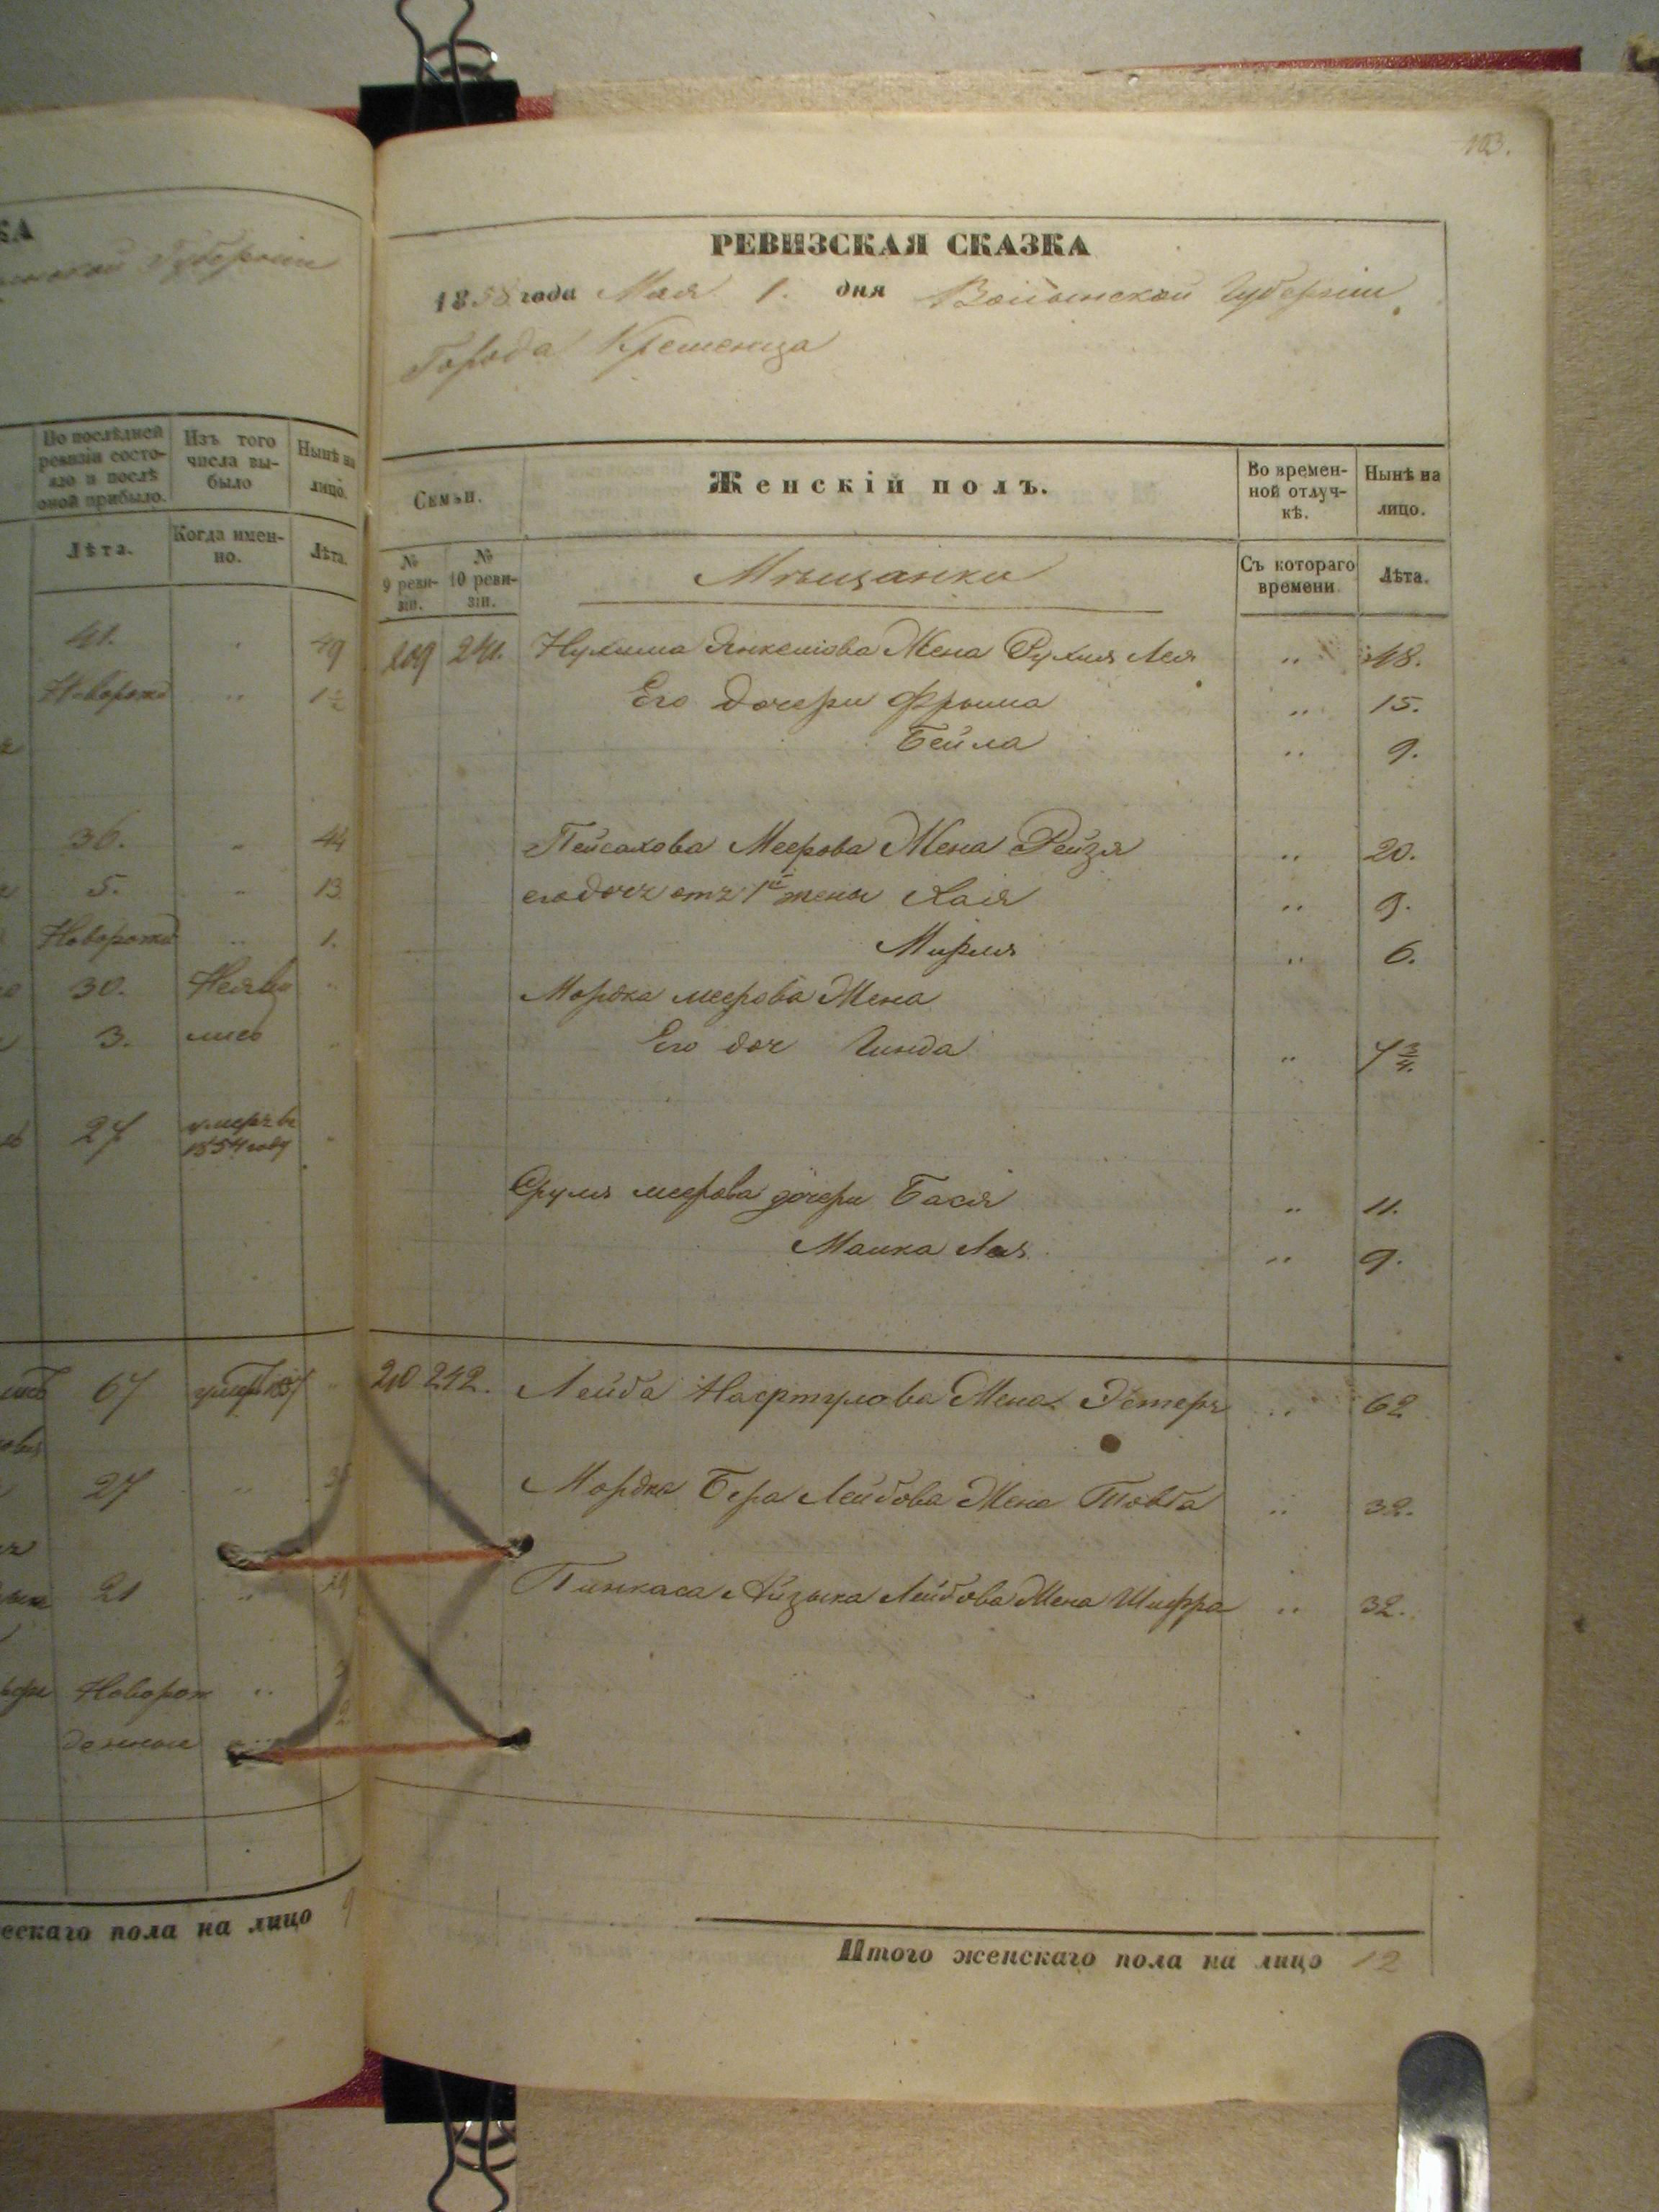 КА
Губернии
По послѣдней ревизіи состо-
яло и послѣ
оной прибыло.
Изъ того
числа вы-
было
Нынѣ на
лицо.
Лѣта.
Когда имен-
но.
Лѣта.
41. " 49
Новорожд " 1½
36. " 44
5. " 13
Новорожд " 1.
30. Неяви "
3. лись "
27 умеръ въ
1854 году "
67 умеръ 1857 "
27 "
21 "
Новорож "
денные
ескаго пола на лицо 9
103.
РЕВИЗСКАЯ СКАЗКА
1858 года Мая 1. дня Волынской Губерніи
Города Кременца
Семьи.
Женскій полъ.
Во времен-
ной отлуч-
кѣ.
Нынѣ на
лицо.
№
9 реви-
зіи.
№
10 реви-
зіи.
Мѣщанки
Съ котораго
времени
Лѣта.
209 241. Нухима Янкелiова Жена Рухля Лея " 48.
Его дочери Фрыма " 15.
Бейла " 9.
Пейсахова Меерова Жена Рейзя " 20.
его дочь отъ 1й жены Хаія " 9.
Мирля " 6.
Мордка меерова Жена
Его доч Гинда " 7¾.
Сруля меерова дочери Бася " 11.
Малка Лея " 9.
210 242. Лейба Нафтулова Жена Эстеръ " 62
Мордка Бера Лейбова Жена Товба " 32.
Пинкаса Айзыка Лейбова Жена Шифра " 32.
Итого женскаго пола на лицо 12